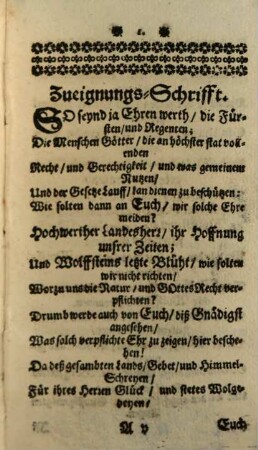 Zueignungs-Schrifft.
SO seynd ja Ehren werth / die Für-
sten / und Regenten;
Die Menschen Götter / die an höchster stat
enden
Recht / und Gerechtigkeit / und was gemeinem
Nutzen /
Und der Gesetze Lauff / kan dienen zu beschützen:
Wie solten dann an Euch / wir solche Ehre
meiden?
Hochwerther Landesherz / ihr Hoffnung
unsrer Zeiten;
Und Wolffsteins letzte Blüht / wie solten
wir nicht richten /
Worzu uns die Natur / und GOttes Recht ver-
pflichten?
Drumb werde auch von Euch / diß Gnädigst
angesehen /
Was solch verpflichte Ehr zu zeigen / hier besche-
hen!
Da deß gesambten Lands / Gebet / und Himmel-
Schreyen /
Für ihres Herren Glück / und stetes Wolge-
deyen /
A v Euch